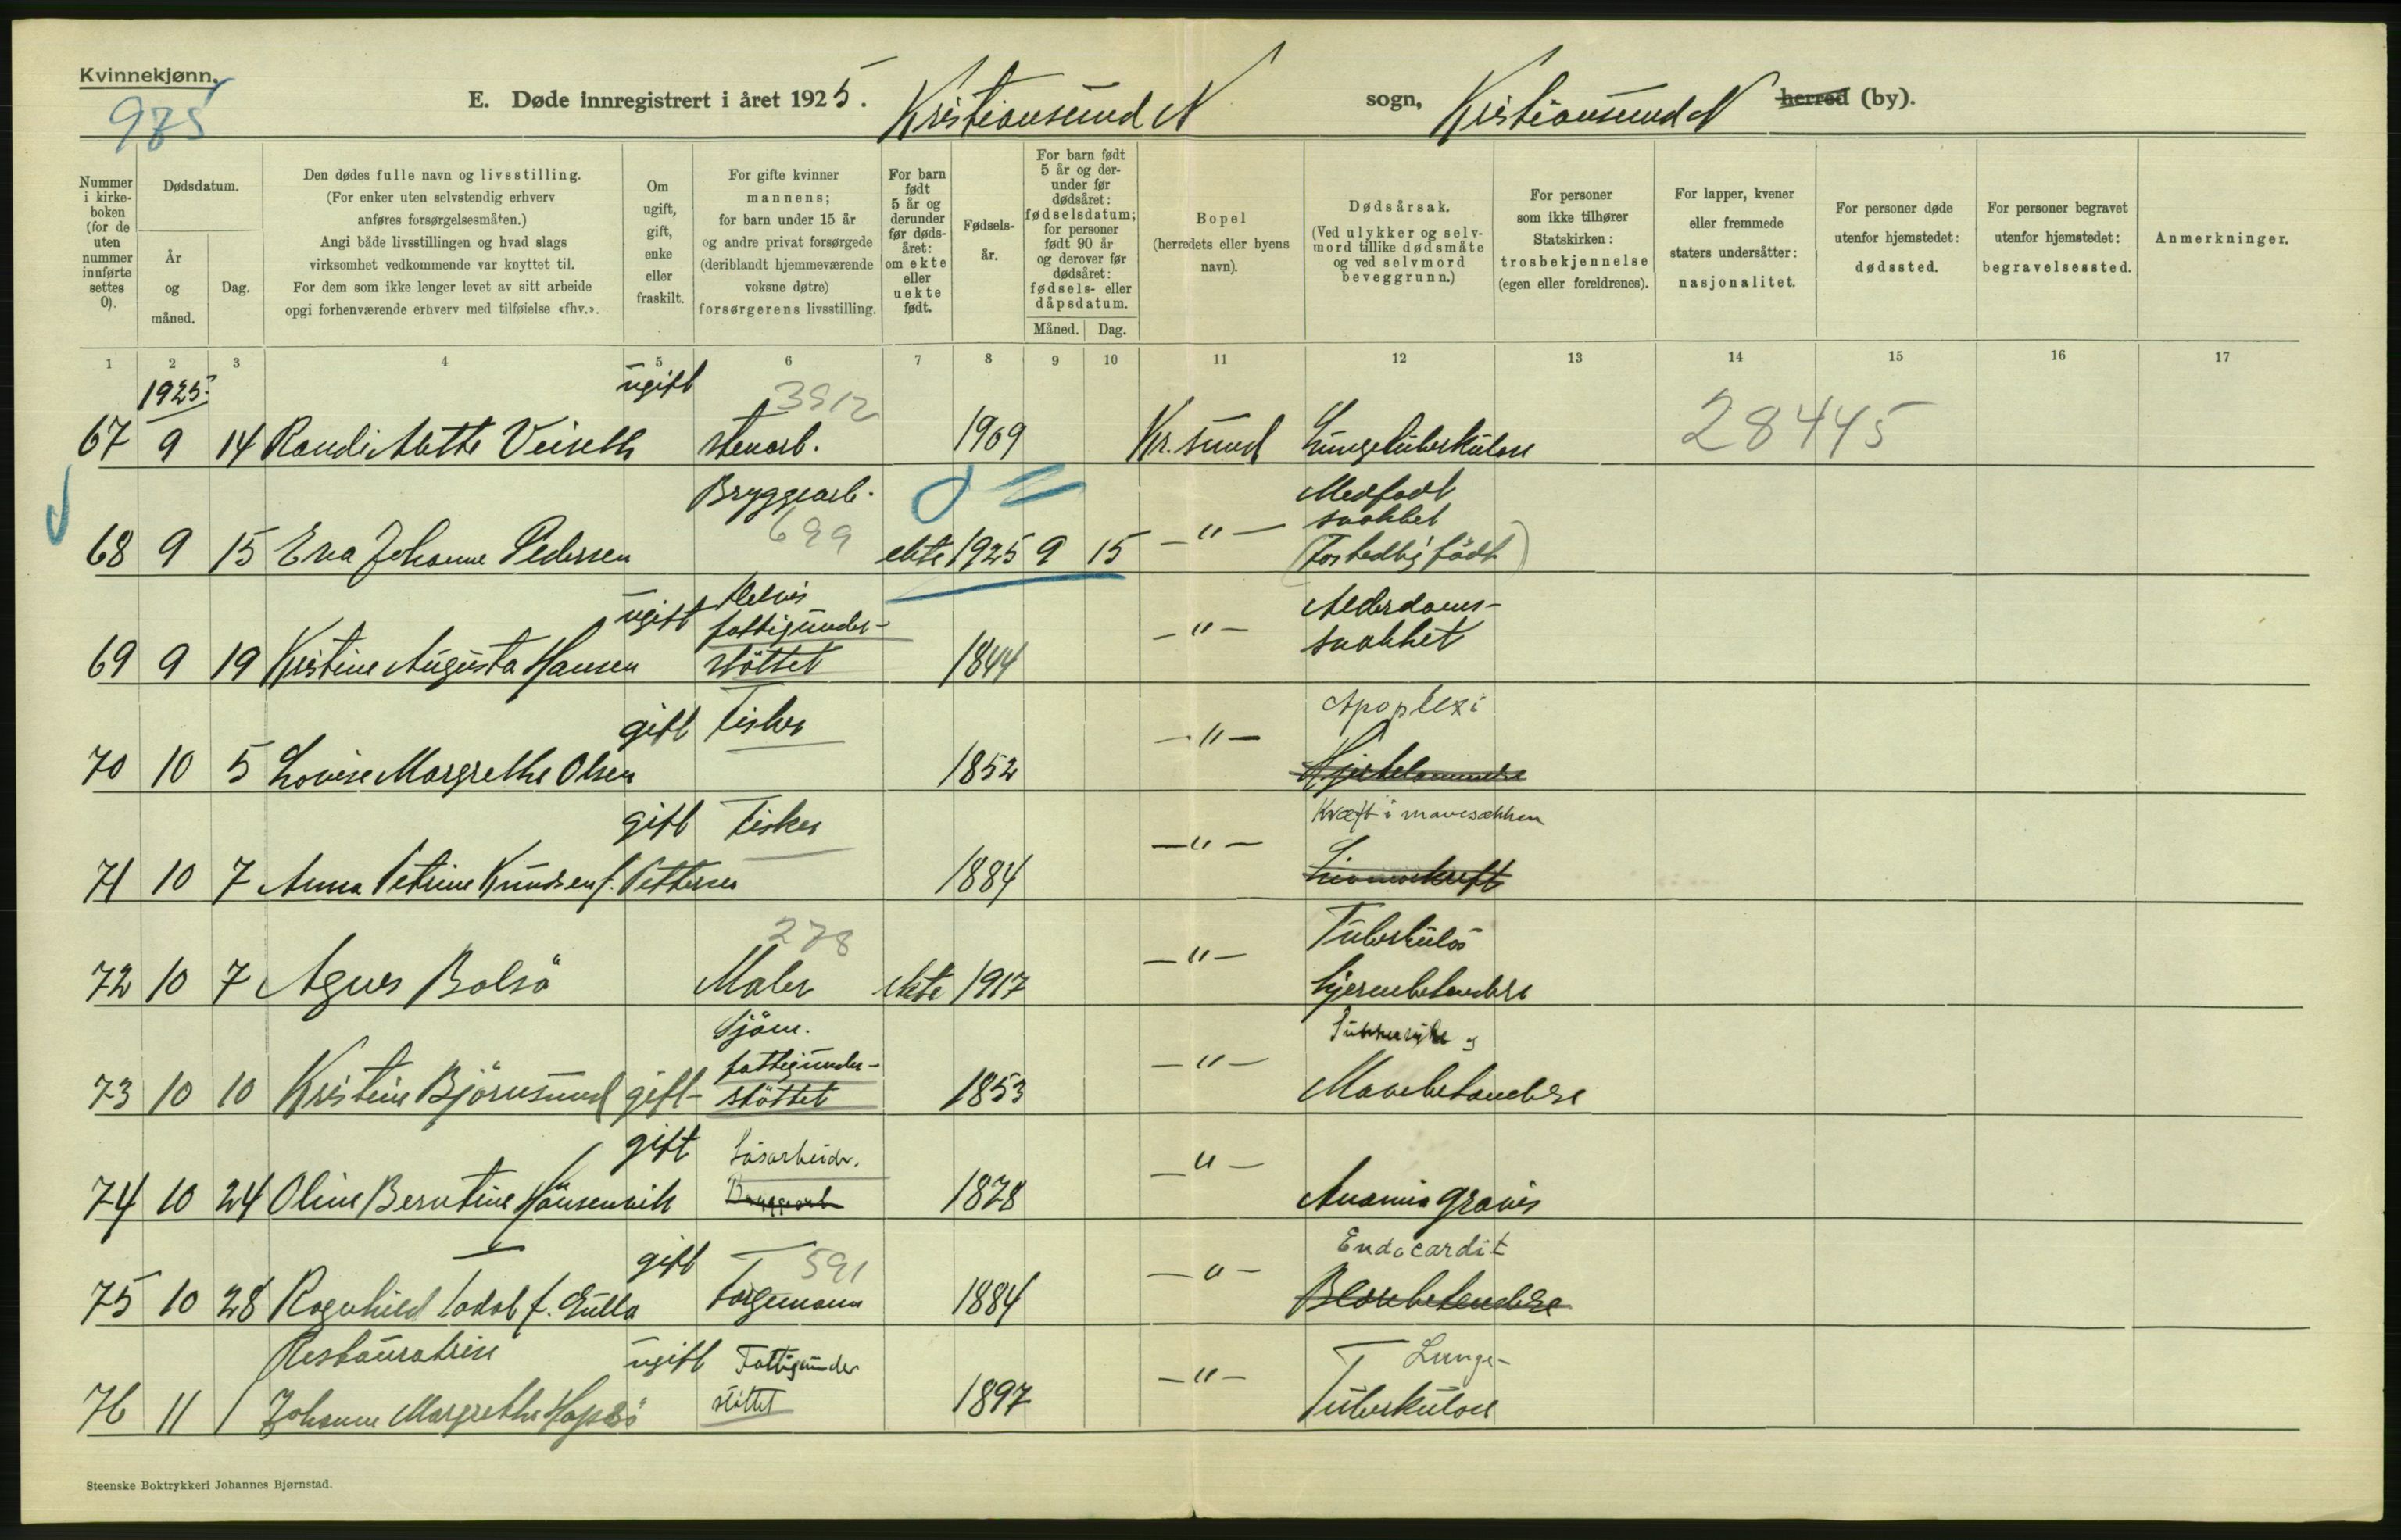 Kvinnekjønn.
975
E. Døde innregistrert i året 1925. Kristiansund N sogn, Kristiansund N herred (by).
Nummer i kirkeboken (for de uten nummer innførte settes 0).
Dødsdatum.
År og måned.
Dag.
Den dødes fulle navn og livsstilling.
(For enker uten selvstendig erhverv
anføres forsørgelsesmåten.)
Angi både livsstillingen og hvad slags
virksomhet vedkommende var knyttet til.
For dem som ikke lenger levet av sitt arbeide
opgi forhenværende erhverv med tilføielse «fhv.».
Om ugift, gift, enke eller fraskilt.
For gifte kvinner
mannens;
for barn under 15 år
og andre privat forsørgede
(deriblandt hjemmeværende
voksne døtre)
forsørgerens livsstilling.
For barn født 5 år og derunder før dødsåret: om ekte eller uekte født.
Fødselsår.
For barn født 5 år og derunder før dødsåret: fødselsdatum; for personer født 90 år og derover før dødsåret: fødsels- eller dåpsdatum.
Måned. Dag.
Bopel
(herredets eller byens
navn).
Dødsårsak.
(Ved ulykker og selvmord tillike dødsmåte
og ved selvmord
beveggrunn.)
For personer
som ikke tilhører
Statskirken:
trosbekjennelse
(egen eller foreldrenes).
For lapper, kvener
eller fremmede
staters undersåtter:
nasjonalitet.
For personer døde
utenfor hjemstedet:
dødssted.
For personer begravet
utenfor hjemstedet:
begravelsessted.
Anmerkninger.
1 2 3 4 5 6 7 8 9 10 11 12 13 14 15 16 17
1925. ugift 3912
67 9 14 Randi Mette Veiseth stenarb. 1909 Kr.sund Lungetuberkulose 28445
Bryggearb. Medfødt
699 svakhet
68 9 15 Eva Johanne Pedersen ekte 1925 9 15 -"- (For tidlig født)
ugift Delvis Alderdoms-
fattigunder- -"- svakhet
69 9 19 Kristine Augusta Hansen støttet 1844
gift Fisker -"- Apoplexi
70 10 5 Lovise Margrethe Olsen 1852
gift Fisker -"- Kræft i mavesækken
71 10 7 Anna Petrine Knudsen f. Pettersen 1884
278 -"- Tuberkuløs
72 10 7 Agnes Bolsø Maler ekte 1917 hjernebetendelse
Sjøm. Sukkersyke og
fattigunder- -"-
73 10 10 Kristine Bjørnsund gift støttet 1853 Mavebetendelse
gift Løsarbeider. -"-
74 10 24 Oline Berntine 1878 Anæmia gravis
gift 591 -"- Endocardit
75 10 28 Ragnhild f. Gulla 1884 Blærebetendelse
Restauratrise ugift Fattigunder -"- Lunge-
76 11 1 Johanne Margrethe Hopsø støttet 1897 Tuberkulose
Steenske Boktrykkeri Johannes Bjørnstad.